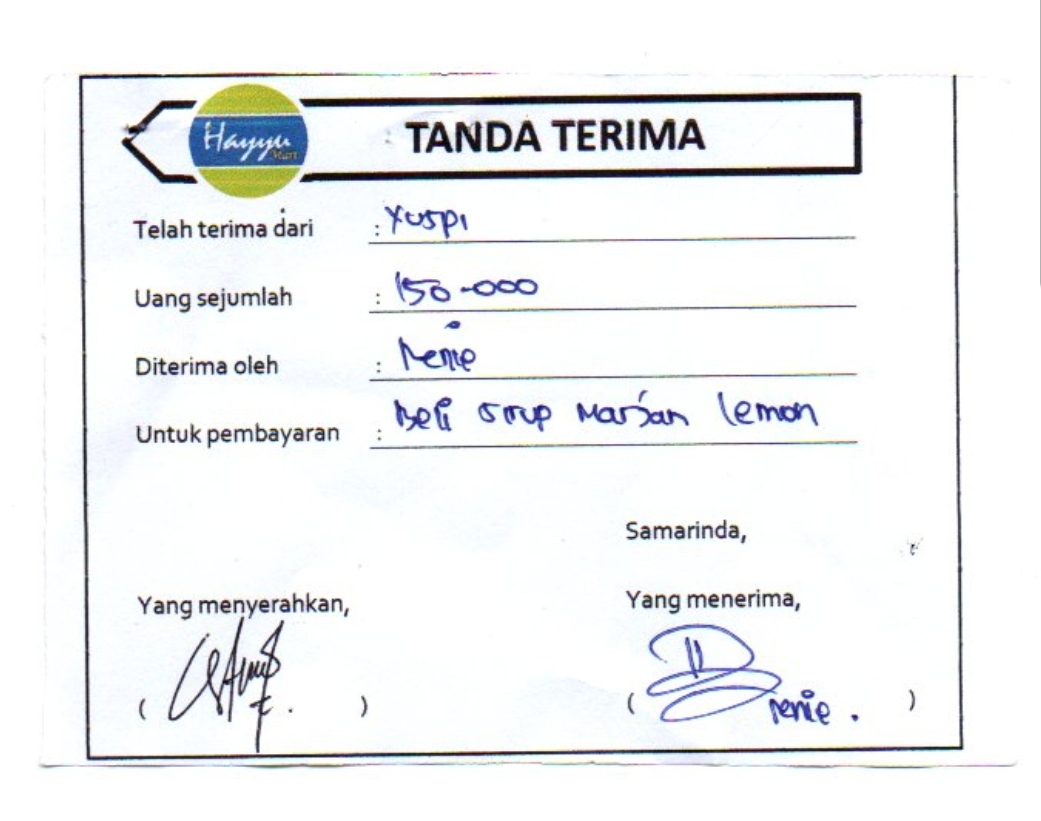 Hayyu Mart
TANDA TERIMA
Telah terima dari : Yuspi
Uang sejumlah : 150.000
Diterima oleh : Renie
Untuk pembayaran : Beli sirup Marjan lemon
Samarinda,
Yang menyerahkan, Yang menerima,
( ) ( renie. )